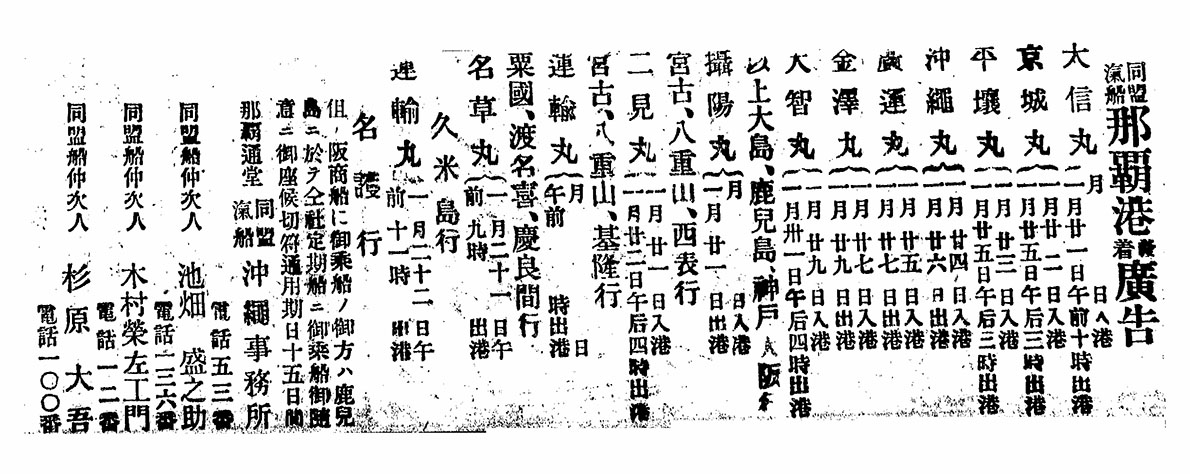 同盟汽船那覇港發着廣告
太信丸 月 日入港
二月廿一日午前十時出港
京城丸 一月廿二日入港
一月廿五日午后三時出港
平壤丸 一月廿三日入港
一月廿五日午后三時出港
沖繩丸 一月廿四日入港
一月廿六日出港
廣運丸 一月廿五日入港
一月廿七日出港
金澤丸 一月廿七日入港
一月廿九日出港
大智丸 一月廿九日入港
一月卅一日午后四時出港
以上大島、鹿兒島、神戸、大阪行
攝陽丸 月 日入港
一月廿一日出港
宮古、八重山、西表行
二見丸 一月廿一日入港
一月廿二日午后四時出港
宮古、八重山、基隆行
運輸丸 月 日
午前 時出港
粟國、渡名喜、慶良間行
名草丸 一月二十一日午
前九時出港
久米島行
運輸丸 一月二十二日午
前十一時出港
名護行
但ノ阪商船に御乗船ノ御方ハ鹿兒
島ニ於テ仝社定期船ニ御乗船御隨
意ニ御座候切符通用期日十五日間
那覇通堂 同盟汽船 沖繩事務所
電話五三番
同盟船仲次人 池畑盛之助
電話一三六番
同盟船仲次人 木村榮左工門
電話一二番
同盟船仲次人 杉原大吾
電話一〇〇番